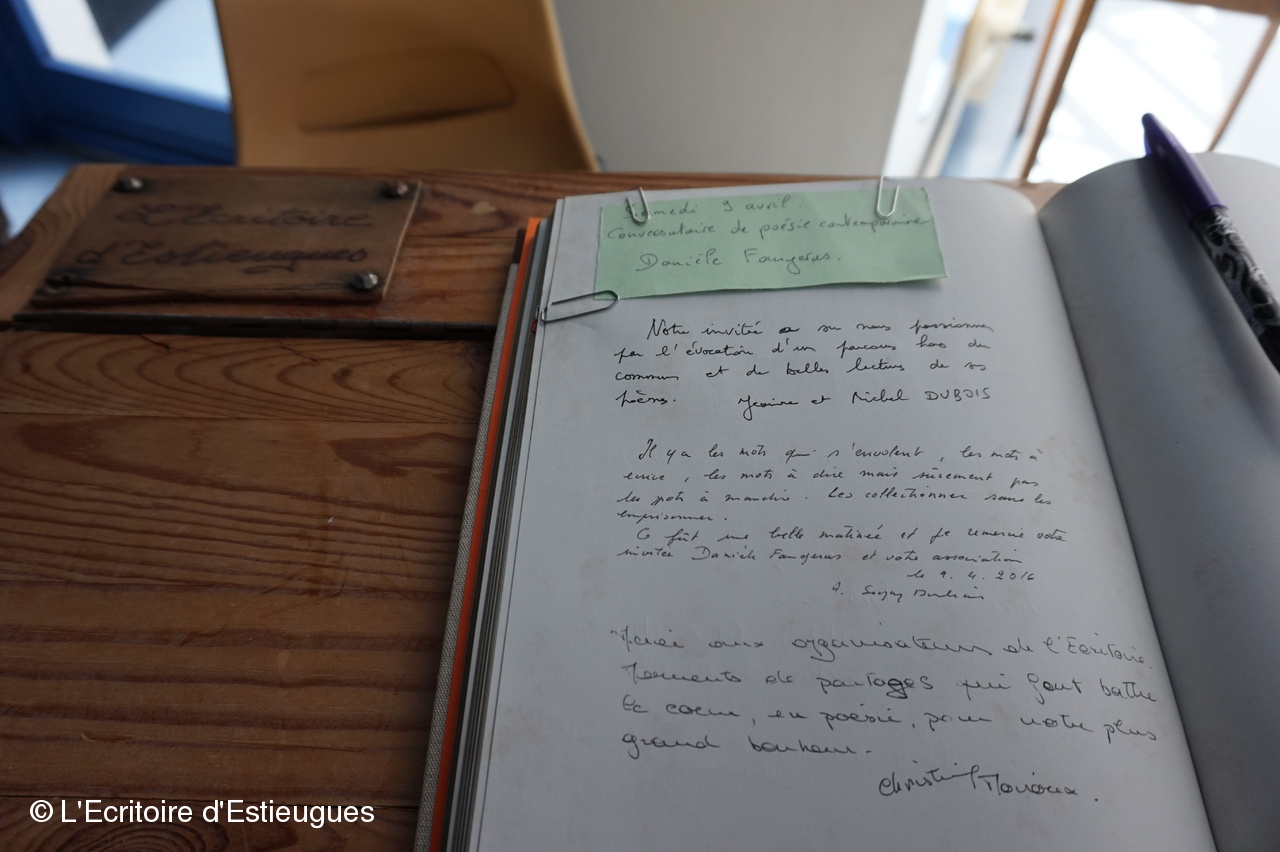 L'Ecritoire
d'Estieugues
Samedi 9 avril.
Conversatoire de poésie contemporaine
Danièle Faugeras.
Notre invitée a su nous passionner
par l'évocation d'un parcours hors du
commun et de belles lectures de ses
poèmes. Jeanine et Michel DUBOIS
Il y a les mots qui s'envolent, les mots à
écrire, les mots à dire mais sûrement pas
les mots à maudire. Les collectionner sans les
emprisonner.
Ce fût une belle matinée et je remercie votre
invitée Danièle Faugeras et votre association
le 9. 4. 2016
Merci aux organisateurs de l'Ecritoire.
Moments de partages qui font battre
le coeur, en poésie, pour notre plus
grand bonheur.
Christine
© L'Ecritoire d'Estieugues